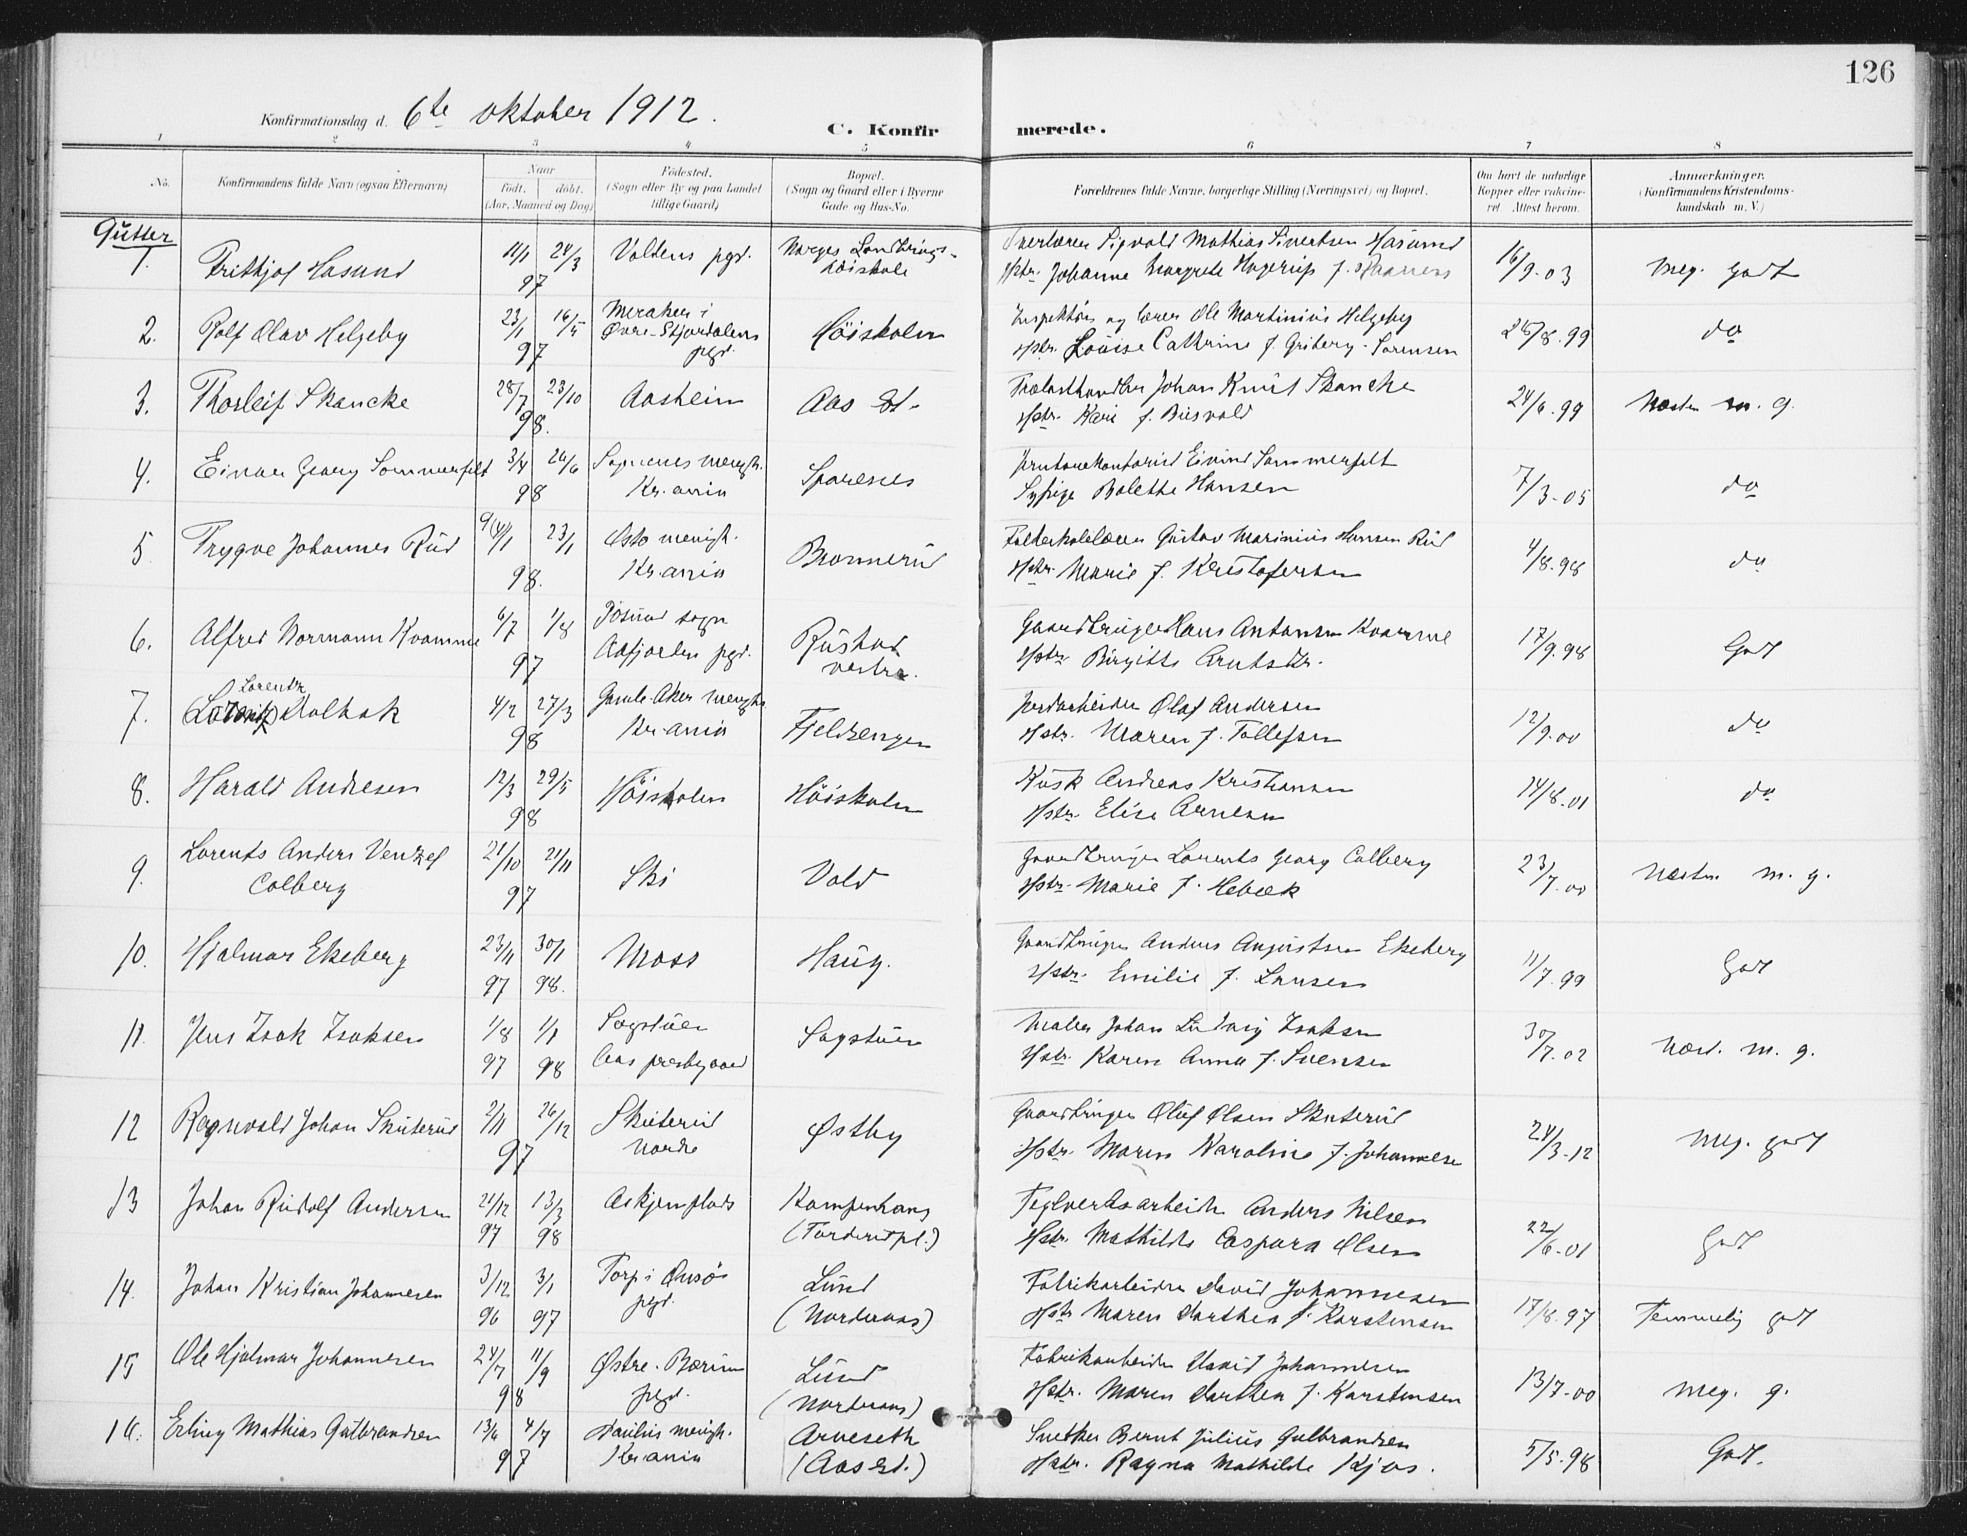 126
Konfirmationsdag d. 6te oktober 1912.
C. Konfirmerede.
1 2 3 4 5 6 7 8
No. Konfirmandens fulde Navn (ogsaa Efternavn) Naar födt. döbt. (Aar, Maaned og Dag) Födested. (Sogn eller By og paa Landet tillige Gaard) Bopæl. (Sogn og Gaard eller i Byerne Gade og Hus-No. Forældrenes fulde Navne, borgerlige Stilling (Næringsvei) og Bopæl. Om havt de naturlige Kopper eller vakcineret Attest herom. Anmærkninger. (Konfirmandens Kristendomskundskab m. V.)
Gutter
1. Fritkjof Hasund 11/1 24/3 97 Voldens pgd. Norges Landbrugshöiskole Sigvald Mathias Sivertsen Hasund
Hstr. Johanne Margrete Hagerup f. 16/9-03 Meg. godt
2. Rolf Olav Helgeby 23/1 16/5 97 Meraker i Øvre-Stjordalens pgd. Höiskolen Inspektör og lærer Ole Martinius Helgeby
Hstr. Louise Cathrine f. Griberg-Sørensen 28/8.99 do
3. Thorleif Skancke 28/7 23/10 98. Aasheim Aas St. Trælasthandler Johan Knut Skancke
Hstr. Kari f. Biesvold 24/6.99 Næsten m. g.
4. Einar Georg Sommerfelt 3/4 26/6 98 Sagenes menigh. Kr.ania Sparenes Eivind Sommerfelt
Sypige Bolette Hansen 7/3-05 do
5 Trygve Johannes Rud 9(4/1 23/1 98. Oslo menigh. Kr.ania Bronnerud Folkeskolelærer Gustav Marinius Hansen Rud
Hstr. Marie f. Kristofersen 4/8.98 do
6. Alfred Normann Kvamme 6/7 1/8 97 sogn Aafjorden pgd. Rustad vestre. Gaardbruger Hans Antonsen Kvamme
Hstr. Birgitte Arntsdtr. 17/9.98 Godt
7. Lorentz Kolbak 4/2 27/3 98 Gamle-Aker menigh. Kr.ania Fjeldsengen Jordarbeider Olaf Andersen
Hstr. Maren f. Tollefsen 12/9.00 do
8. Harald Andresen 12/3 29/5 98 Höiskolen Höiskolen Kusk Andreas Kristiansen
Hstr. Elise Arnesen 14/8.01 do
9. Lorents Anders Ventzel Colberg 21/10 21/11 97 Ski Vold Gaardbruger Lorents Georg Colberg
Hstr. Marie f. Hebæk 23/7.00 Næsten m. g.
10. Hjalmar Ekeberg 23/11 97 30/1 98. Moss Haug. Gaardbruger Anders Augustsen Ekeberg
Hstr. Emilie f. Larsen 11/7.99 Godt
11. Jens Isak Isaksen 1/8 97 1/1 98 Sagstuen Aas prestegaard Sagstuen Maler Johan Ludvig Isaksen
Hstr. Karen Anna f. Svensen 30/7.02 Næst. m. g.
12 Ragnvald Johan Skuterud 2/11 26/12 97 Skuterud nordre Østby Gaardbruger Oluf Olsen Skuterud
Hstr. Maren Karoline f. Johannesen 24/3-12 Meg. godt
13 Johan Rudolf Andersen 21/12 97 13/3 98 Askjemplads Kampenhaug (Forderudpl.) Teglverksarbeider Anders Nilsen
Hstr. Mathilde Caspara Olsen 22/6-01 Godt
14. Johan Kristian Johannesen 3/12 96 3/1 97 Torp i Onsö pgd. Lund (Norderaas) Fabrikarbeider David Johannesen
Hstr Maren Dorthea f. Karstensen 17/8.97 Temmelig godt
15 Ole Hjalmar Johannesen 24/7 11/9 98 Østre-Bærum pgd. Lund (Norderaas) Fabrikarbeider David Johannesen
Hstr. Maren Dorthea f. Karstensen 13/7-00 Meg. g.
16. Erling Mathias Gulbrandsen 13/6 4/7 97 Paulus menigh. Kr.ania Arneseth (Aas St.) Snekker Bernt Julius Gulbrandsen
Hstr. Ragna Mathilde Kjos. 5/5.98 Godt.